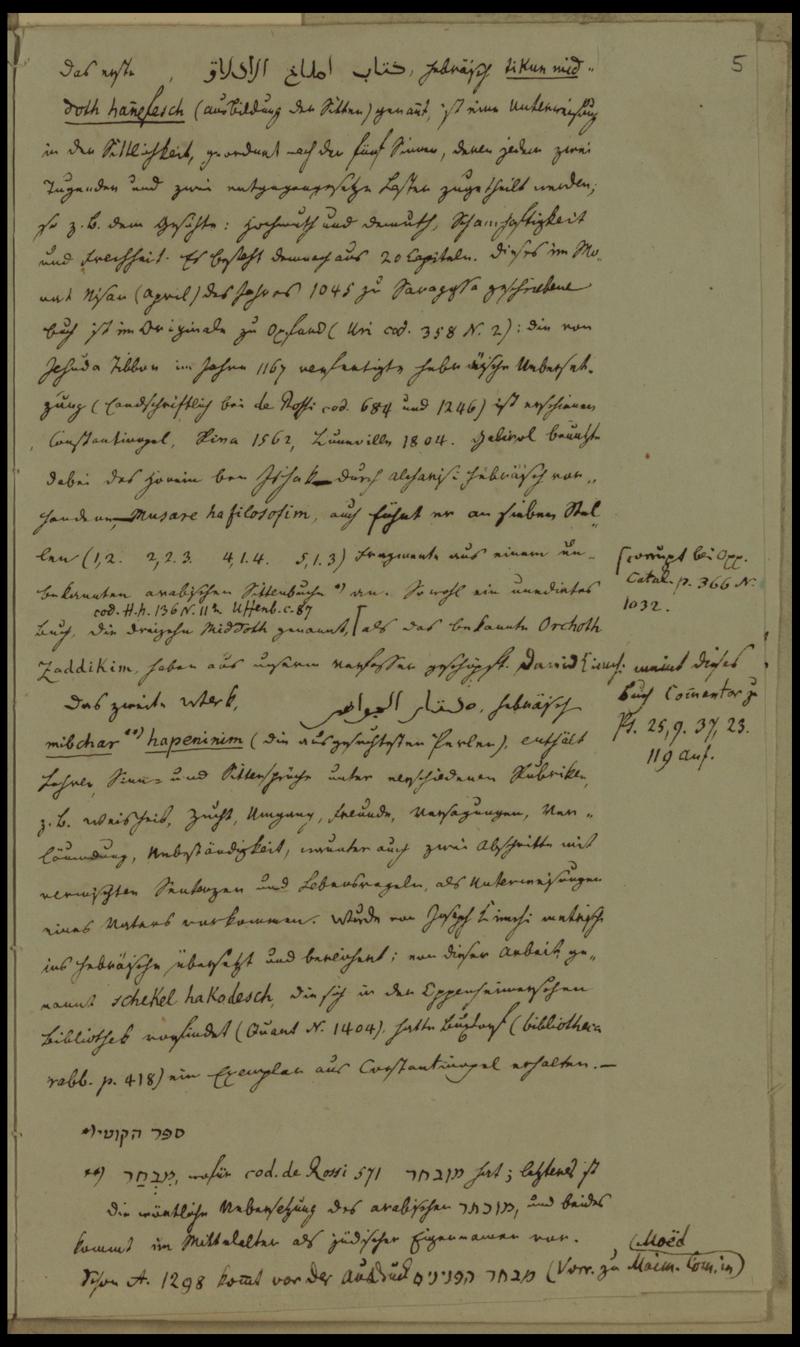 5
Das erste, كتاب اصلاح الاخلاق, hebräisch tikun mid-
doth hanefesch (Ausbildung der Sitten) genañt, ist eine Unterweisung
in der Sittlichkeit, geordnet nach den fünf Sinnen, denen jedem zwei
Tugenden und zwei entgegengesetzte Laster zugetheilt werden;
so z. B. dem Gesichte: Hochmuth und Demuth, Schamhaftigkeit
und Frechheit. Es besteht demnach aus 20 Capiteln. Dieses im Mo-
nat Nisan (April) des Jahres 1045 zu Saragossa geschriebene
Buch ist im Originale zu Oxford (Uri cod. 358 N. 2): die von
Jehuda Tibbon im Jahre 1167 verfertigte hebräische Ueberset-
zung (handschriftlich bei de Rossi cod. 684 und 1246) ist erschienen
Constantinopel, Riva 1562, Luneville 1804. Gabirol benutzte
dabei des Honein ben Ishak durch Alcharisi hebräisch vor-
handenen Musare hafilosofim, auch führt er an sieben Stel-
len (1,2. 2,2.3. 4,1.4. 5,1.3) Fragmente aus einem un-
bekannten arabischen Sittenbuche *) an. Sowohl ein unedirtes
cod. H.h. 136 N. 11 Uffenb. c. 87
Buch, die dreizehn Middoth genannt, [als das bekannte Orchoth
Zaddikim, haben aus unserm Verfasser geschöpft. David Kimchi meint dieses
[corrupt bei Opp.
Catal. p. 366 N.
1032.
Buch Comentar zu
Ps. 25,9. 37,23.
119 Anf.
Das zweite Werk, مختار الجواهر, hebräisch
mibchar **) hapeninim (die ausgesuchtesten Perlen), enthält
Lehren, Sinn- und Sittensprüche unter verschiedenen Rubriken,
z. B. Weisheit, Zucht, Umgang, Freunde, Versagungen, Ver-
läumdung, Unbeständigkeit, worunter auch zwei Abschnitte mit
vermischten Sentenzen und Lebensregeln, als Unterweisungen
eines Vaters vorkommen. Wurde von Joseph Kimchi metrisch
ins hebräische übersetzt und bereichert; von dieser Arbeit, ge-
nannt schekel hakodesch, die sich in der Oppenheimerschen
Bibliothek vorfindet (Quart N. 1404), hatte Buxtorf (bibliotheca
rabb. p. 418) ein Exemplar aus Constantinopel erhalten.—
*) ספר הקוטי
**) מִבְחַר, wofür cod. de Rossi 571 מובחר hat; letzteres ist
die wörtliche Uebersetzung des arabischen מוכתר, und beides
kommt im Mittelalter als jüdischer Eigennamen vor.
Schon A. 1298 komt vor der Ausdruck מבחר הפנינים (Vorr. zu Maim. Com. in
Moëd)